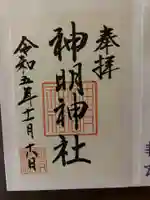 奉拝
神明神社
令和五年十一月十六日